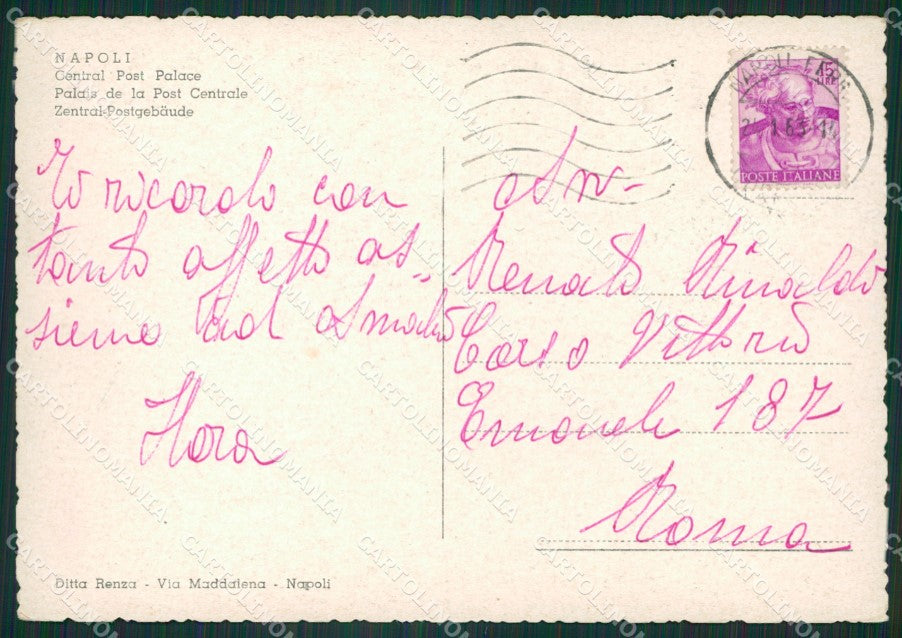 NAPOLI
Central Post Palace
Palais de la Post Centrale
Zentral-Postgebäude
Ti ricordo con
tanto affetto as„
sieme ad Amalia
Flora
Renato Rinaldi
Corso Vittorio
Emanuele 187
Roma
POSTE ITALIANE
Ditta Renza - Via Maddalena - Napoli
CARTOLINOMANIA